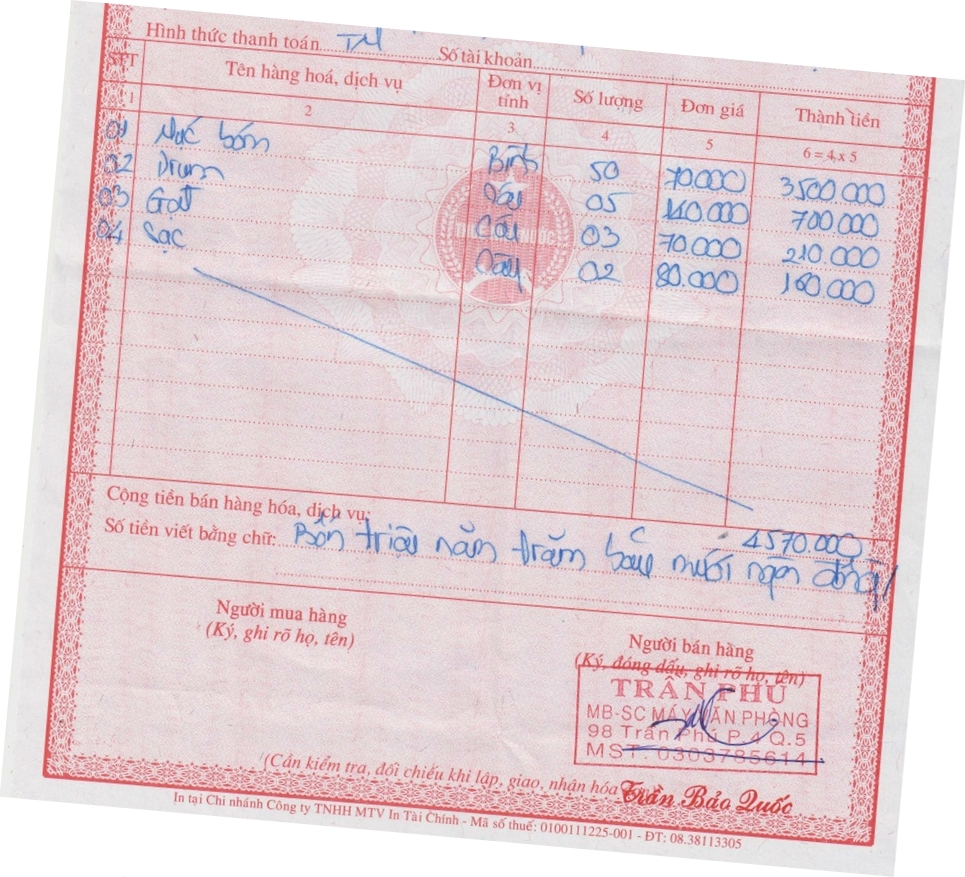 Hình thức thanh toán TM Số tài khoản
STT Tên hàng hoá, dịch vụ Đơn vị tính Số lượng Đơn giá Thành tiền
1 2 3 4 5 6 = 4 x 5
01 Mực bơm Bình 50 70.000 3500.000
02 Drum Cây 05 140.000 700.000
03 Gạt Cây 03 70.000 210.000
04 Sạc Cây 02 80.000 160.000
Cộng tiền bán hàng hóa, dịch vụ: 4570.000
Số tiền viết bằng chữ: Bốn triệu năm trăm bảy mươi ngàn đồng/
Người mua hàng
(Ký, ghi rõ họ, tên)
Người bán hàng
(Ký, đóng dấu, ghi rõ họ, tên)
TRẦN PHÚ
MB-SC MÁY VĂN PHÒNG
98 Trần Phú P.4 Q.5
MST: 0303785614
(Cần kiểm tra, đối chiếu khi lập, giao, nhận hóa
Trần Bảo Quốc
In tại Chi nhánh Công ty TNHH MTV In Tài Chính - Mã số thuế: 0100111225-001 - ĐT: 08.38113305